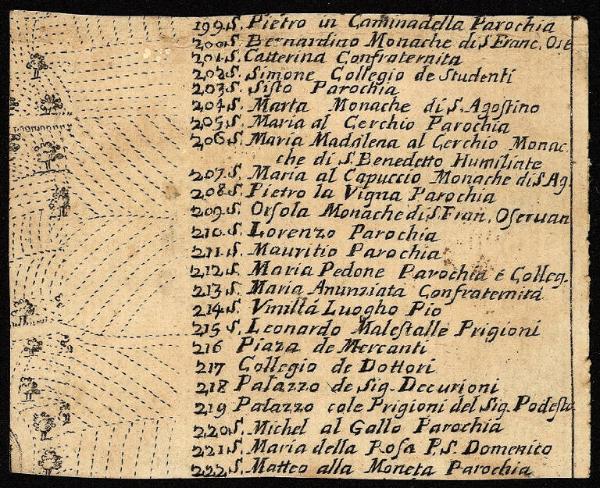 199 S. Pietro in Caminadella Parochia
200 S. Bernardino Monache di S. Franc. Ose
201 S. Catterina Confraternita
202 S. Simone Collegio de Studenti
203 S. Sisto Parochia
204 S. Marta Monache di S. Agostino
205 S. Maria al Cerchio Parochia
206 S. Maria Madalena al Cerchio Monac
che di S. Benedetto Humiliate
207 S. Maria al Capuccio Monache di S. Ag.
208 S. Pietro la Vigna Parochia
209 S. Orsola Monache di S. Fran. Oseruan
210 S. Lorenzo Parochia
211 S. Mauritio Parochia
212 S. Maria Pedone Parochia e Colleg.
213 S. Maria Anunziata Confraternita
214 S. Vmiltá Luogho Pio
215 S. Leonardo Malestalle Prigioni
216 Piaza de Mercanti
217 Collegio de Dottori
218 Palazzo de Sig. Decurioni
219 Palazzo cole Prigioni del Sig. Podesta
220 S. Michel al Gallo Parochia
221 S. Maria della Rosa P.S. Domenico
222 S. Matteo alla Moneta Parochia